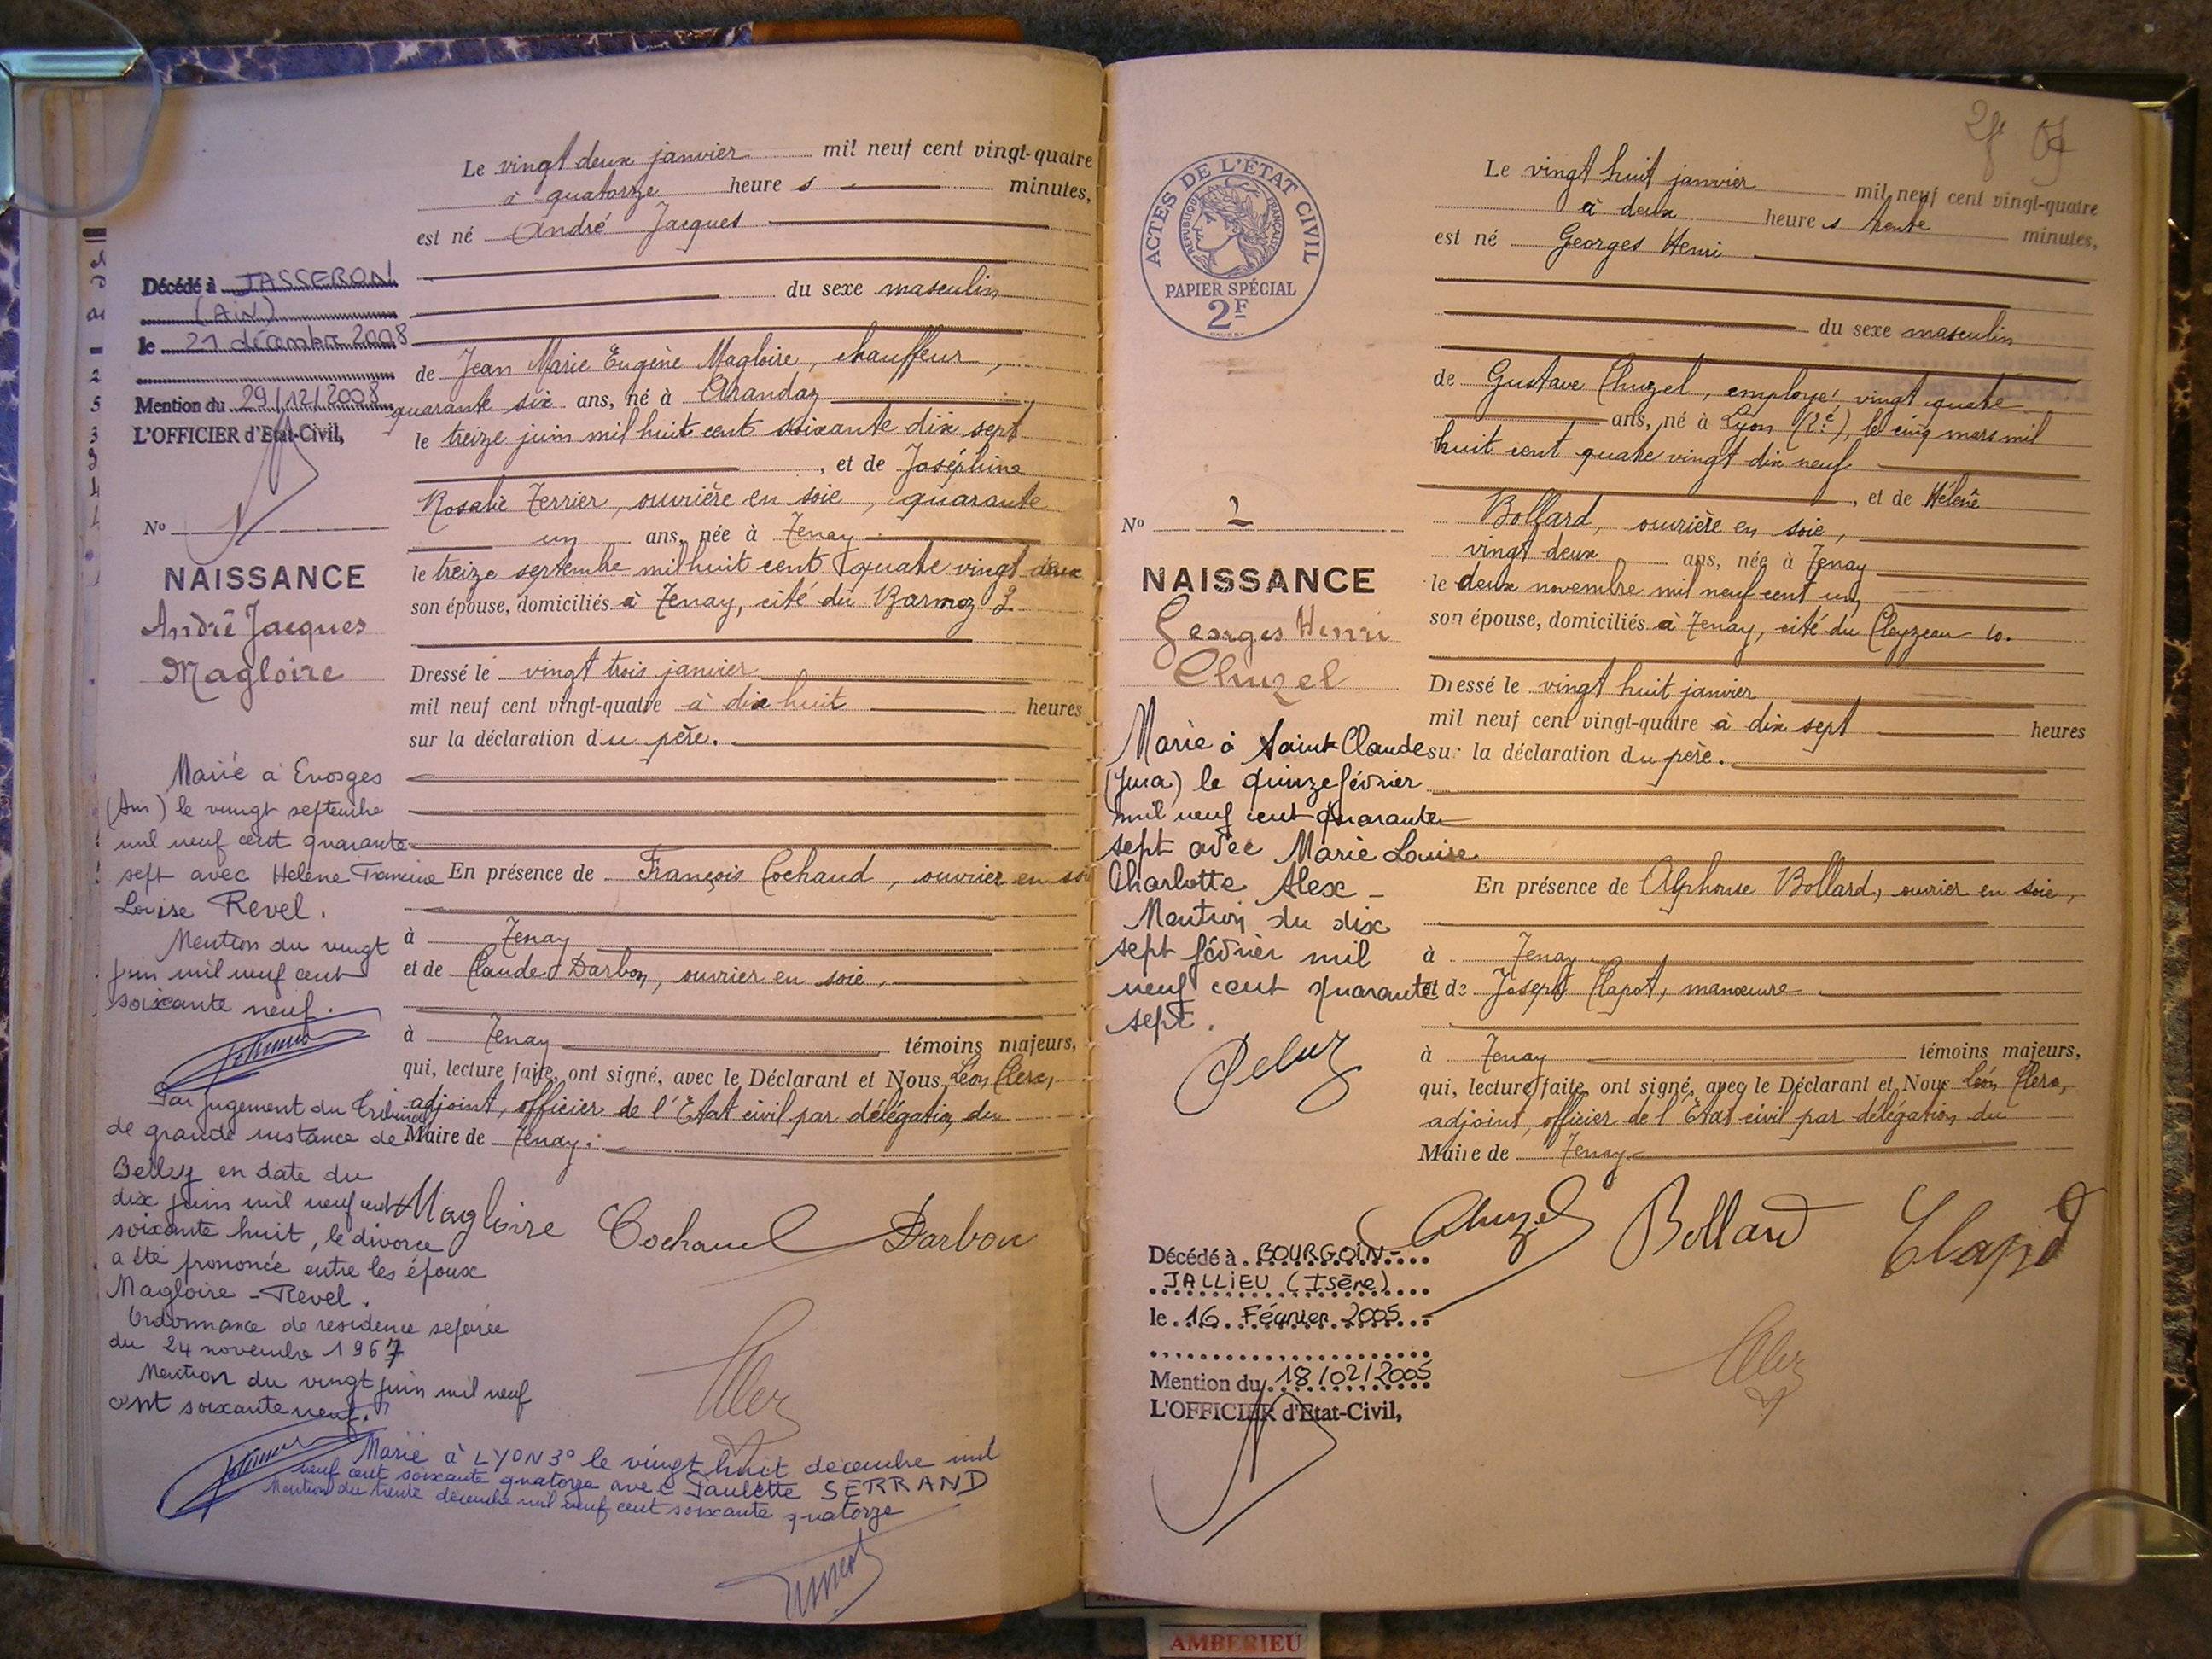 Le vingt deux janvier mil neuf cent vingt-quatre
à quatorze heures minutes,
est né André Jacques
du sexe masculin
de Jean Marie Eugène Magloire, chauffeur,
quarante six ans, né à Arandaz
le treize juin mil huit cent soixante dix sept
, et de Joséphine
Rosalie Terrier, ouvrière en soie, quarante
un ans, née à Tenay
le treize septembre mil huit cent quatre vingt deux
son épouse, domiciliés à Tenay, cité du Barmoz 2
Dressé le vingt trois janvier
mil neuf cent vingt-quatre à dix huit heures
sur la déclaration du père.
En présence de François Cochaud, ouvrier en soie
à Tenay
et de Claude Darbon, ouvrier en soie,
à Tenay témoins majeurs,
qui, lecture faite, ont signé, avec le Déclarant et Nous, Léon Clerc,
adjoint, officier de l'Etat civil par délégation du
Maire de Tenay.
Magloire Cochaud Darbon
Décédé à JASSERON
(AiN)
le 21 décembre 2008
Mention du 29/12/2008
L'OFFICIER d'Etat-Civil,
No 1
NAISSANCE
André Jacques
Magloire
Marié à Evosges
(Ain) le vingt septembre
mil neuf cent quarante
sept avec Hélène Francine
Louise Revel.
Mention du vingt
juin mil neuf cent
soixante neuf.
Par jugement du Tribunal
de grande instance de
Belley en date du
dix juin mil neuf cent
soixante huit, le divorce
a été prononcé entre les époux
Magloire - Revel.
Ordonnance de résidence séparée
du 24 novembre 1967
Mention du vingt juin mil neuf
cent soixante neuf.
Marié à LYON 3° le vingt huit décembre mil
neuf cent soixante quatorze avec Paulette SERRAND
Mention du trente décembre mil neuf cent soixante quatorze
ACTES DE L'ETAT CIVIL
REPUBLIQUE FRANÇAISE
PAPIER SPÉCIAL
2F
Le vingt huit janvier mil neuf cent vingt-quatre
à deux heures trente minutes,
est né Georges Henri
du sexe masculin
de Gustave Chuzel, employé, vingt quatre
ans, né à Lyon (2e), le cinq mars mil
huit cent quatre vingt dix neuf
, et de Hélène
Bollard, ouvrière en soie,
vingt deux ans, née à Tenay
le deux novembre mil neuf cent un
son épouse, domiciliés à Tenay, cité du Cleyzeau 10.
Dressé le vingt huit janvier
mil neuf cent vingt-quatre à dix sept heures
sur la déclaration du père.
En présence de Alphonse Bollard, ouvrier en soie,
à Tenay
et de Joseph Clapot, manœuvre
à Tenay témoins majeurs,
qui, lecture faite, ont signé, avec le Déclarant et Nous Léon Clerc,
adjoint, officier de l'Etat civil par délégation du
Maire de Tenay
Chuzel Bollard Clapot
No 2
NAISSANCE
Georges Henri
Chuzel
Marié à Saint Claude
(Jura) le quinze février
mil neuf cent quarante
sept avec Marie Louise
Charlotte Alex -
Mention du dix
sept février mil
neuf cent quarante
sept.
Décédé à BOURGOIN-
JALLIEU (Isère)
le 16 Février 2005
Mention du 18/02/2005
L'OFFICIER d'Etat-Civil,
AMBERIEU